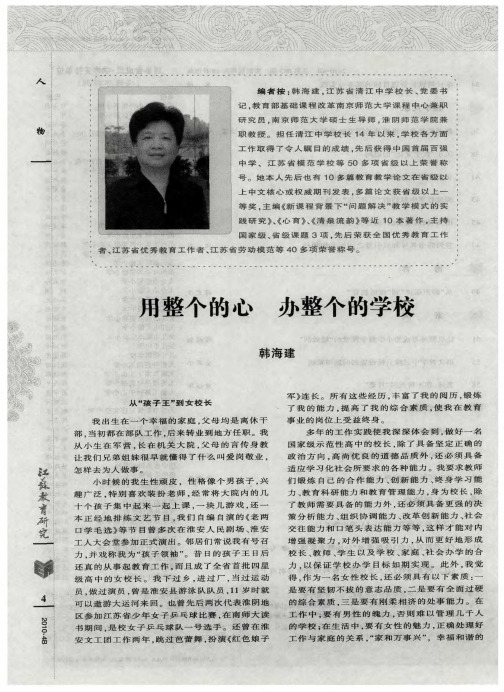 人
物
编者按：韩海建，江苏省清江中学校长、党委书
记，教育部基础课程改革南京师范大学课程中心兼职
研究员，南京师范大学硕士生导师，淮阴师范学院兼
职教授。担任清江中学校长 14 年以来，学校各方面
工作取得了令人瞩目的成绩，先后获得中国首届百强
中学、江苏省模范学校等 50 多项省级以上荣誉称
号。她本人先后也有 10 多篇教育教学论文在省级以
上中文核心或权威期刊发表，多篇论文获省级以上一
等奖，主编《新课程背景下“问题解决”教学模式的实
践研究》、《心育》、《清泉流韵》等近 10 本著作，主持
国家级、省级课题 3 项，先后荣获全国优秀教育工作
者、江苏省优秀教育工作者、江苏省劳动模范等 40 多项荣誉称号。
用整个的心　办整个的学校
韩海建
从“孩子王”到女校长
我出生在一个幸福的家庭，父母均是离休干
部，当初都在部队工作，后来转业到地方任职。我
从小生在军营，长在机关大院，父母的言传身教
让我们兄弟姐妹很早就懂得了什么叫爱岗敬业，
怎样去为人做事。
小时候的我生性顽皮，性格像个男孩子，兴
趣广泛，特别喜欢装扮老师，经常将大院内的几
十个孩子集中起来一起上课，一块儿游戏，还一
本正经地排练文艺节目，我们自编自演的《老两
口学毛选》等节目曾多次在淮安人民剧场、淮安
工人大会堂参加正式演出。邻居们常说我有号召
力，并戏称我为“孩子领袖”。昔日的孩子王日后
还真的从事起教育工作，而且成了全省首批四星
级高中的女校长。我下过乡，进过厂，当过运动
员，做过演员，曾是淮安县游泳队队员，11 岁时就
可以遨游大运河来回。也曾先后两次代表淮阴地
区参加江苏省少年女子乒乓球比赛，在南师大读
书期间，是校女子乒乓球队一号选手。还曾在淮
安文工团工作两年，跳过芭蕾舞，扮演《红色娘子
军》连长。所有这些经历，丰富了我的阅历，锻炼
了我的能力，提高了我的综合素质，使我在教育
事业的岗位上受益终身。
多年的工作实践使我深深体会到，做好一名
国家级示范性高中的校长，除了具备坚定正确的
政治方向，高尚优良的道德品质外，还必须具备
适应学习化社会所要求的各种能力。我要求教师
们锻炼自己的合作能力、创新能力、终身学习能
力、教育科研能力和教育管理能力，身为校长，除
了教师需要具备的能力外，还必须具备更强的决
策分析能力、组织协调能力、改革创新能力、社会
交往能力和口笔头表达能力等等，这样才能对内
增强凝聚力，对外增强吸引力，从而更好地形成
校长、教师、学生以及学校、家庭、社会办学的合
力，以保证学校办学目标如期实现。此外，我觉
得，作为一名女性校长，还必须具有以下素质：一
是要有坚韧不拔的意志品质，二是要有全面过硬
的综合素质，三是要有刚柔相济的处事能力。在
工作中：要有男性的魄力，否则难以管理几千人
的学校；在生活中，要有女性的魅力，正确处理好
工作与家庭的关系，“家和万事兴”，幸福和谐的
江苏教育研究
4
2010·4B